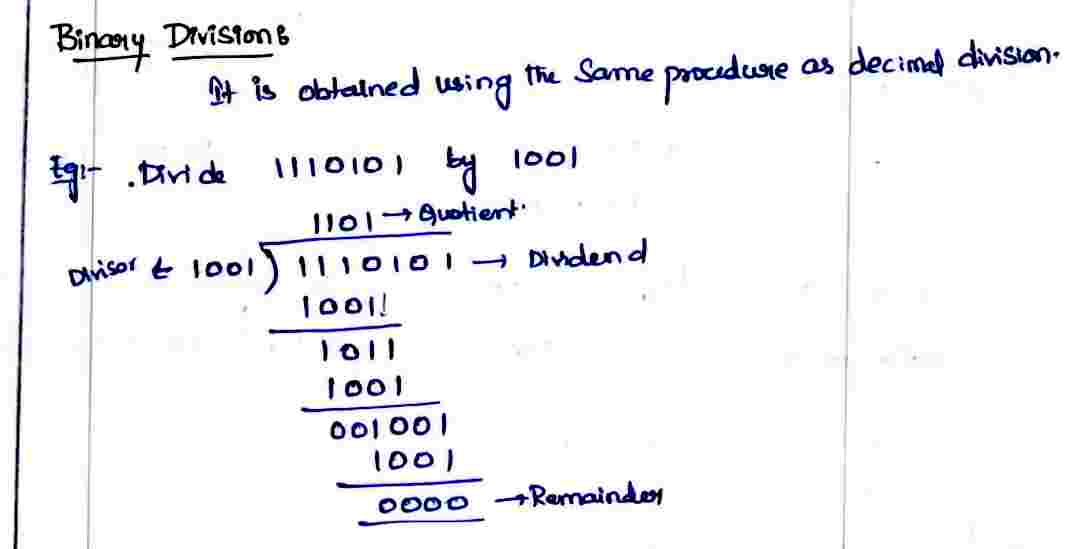 Binary Division:
It is obtained using the same procedure as decimal division.
Eg:- . Divide 1110101 by 1001
1101 → Quotient.
Divisor ← 1001 ) 1110101 → Dividend
1001
1011
1001
001001
1001
0000 → Remainder